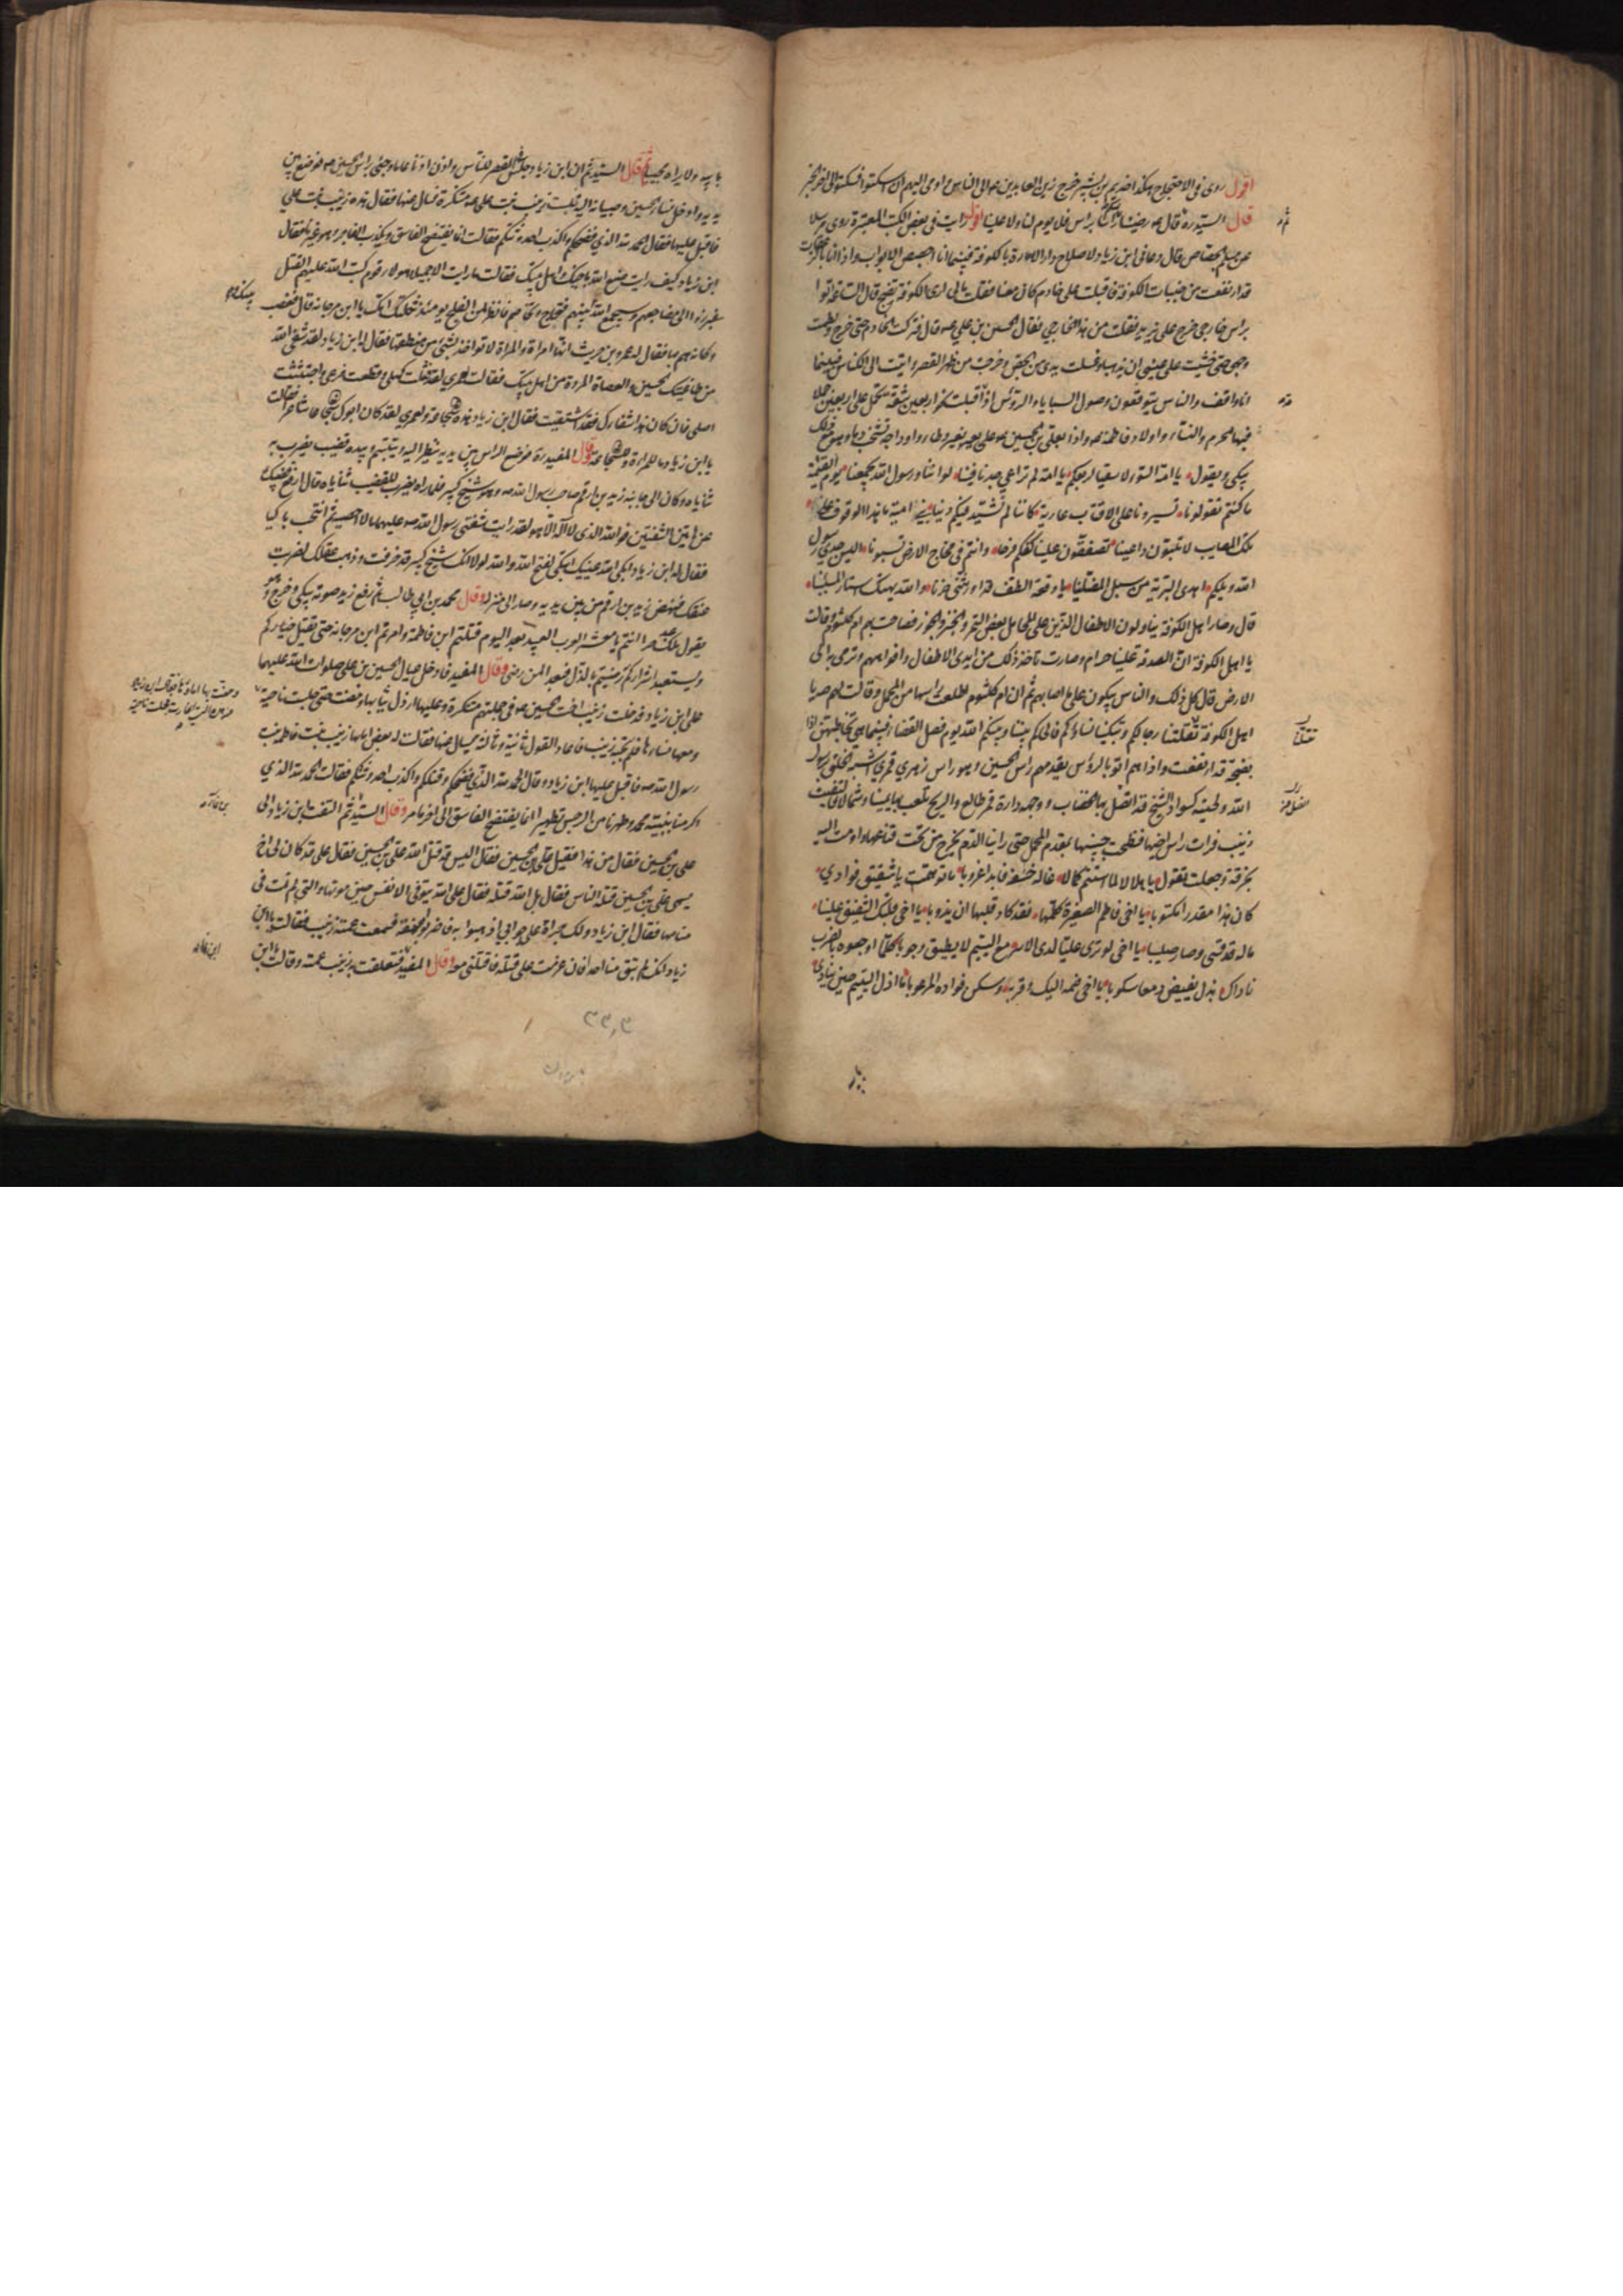 اقول روى فى الاحتجاج هكذا خديم بن بشير خرج زين العابدين ع الى الناس و اومى اليهم ان اسكتوا فسكتوا الى اخر الخبر
قال السيد ره ثم قال ع رضينا منكم راسا براس فلا يوم لنا ولا علينا اقول رايت فى بعض الكتب المعتبرة روى مرسلا
عن مسلم الجصاص قال دعانى ابن زياد لاصلاح دار الامارة بالكوفة فبينما انا اجصص الابواب واذا انا بالزعقات
قد ارتفعت من جنبات الكوفة فاقبلت على خادم كان معنا فقلت مالى ارى الكوفة تضج قال الساعة اتوا
براس خارجى خرج على يزيد فقلت من هذا الخارجى فقال الحسين بن على ع قال فتركت الخادم حتى خرج ولطمت
وجهى حتى خشيت على عينى ان يذهبا وغسلت يدى من الجص وخرجت من ظهر القصر واتيت الى الكناس فبينما
انا واقف والناس يتوقعون وصول السبايا والرؤس اذ اقبلت نحو اربعين شقة تحمل على اربعين جملا
فيها الحرم والنساء واولاد فاطمة ع واذا بعلى بن الحسين ع على بعير بغير وطاء واوداجه تشخب دما وهو مع ذلك
يبكى ويقول يا امة السوء لا سقيا لربعكم يا امة لم تراعى جدنا فينا لو اننا ورسول الله يجمعنا يوم القيمة
ما كنتم تقولونا تسيرونا على الاقتاب عارية كاننا لم نشيد فيكم دينا بنى امية ما هذا الوقوف على
تلك المصايب لا تلبون داعينا تصفقون علينا كفكم فرحا وانتم فى فجاج الارض تسبونا اليس جدى رسول
الله ويلكم اهدى البرية من سبل المضلينا يا وقعة الطف قد اورثتنى حزنا والله يهتك استار المسيئينا
قال وصار اهل الكوفة يناولون الاطفال الذين على المحامل بعض التمر والخبز والجوز فصاحت بهم ام كلثوم وقالت
يا اهل الكوفة ان الصدقة علينا حرام وصارت تاخذ ذلك من ايدى الاطفال وافواههم وترمى به الى
الارض قال كل ذلك والناس يبكون على ما اصابهم ثم ان ام كلثوم اطلعت راسها من المحمل وقالت لهم صه يا
اهل الكوفة تقتلنا رجالكم وتبكينا نساؤكم فالحاكم بيننا وبينكم الله يوم فصل القضاء فبينما هى تخاطبهن اذا
بضجة قد ارتفعت واذا هم اتوا بالرؤس يقدمهم راس الحسين وهو راس زهرى قمرى اشبه الخلق برسول
الله ولحيته كسواد الشيخ قد اتصل بها الخضاب ووجهه دارة قمر طالع والريح تلعب بها يمينا وشمالا فالتفتت
زينب فرات راس اخيها فنطحت جبينها بمقدم المحمل حتى راينا الدم يخرج من تحت قناعها واومت اليه
بخرقة وجعلت تقول يا هلالا لما استتم كمالا غاله خسفه فابدا غروبا ما توهمت يا شقيق فوادى
كان هذا مقدرا مكتوبا يا اخى فاطم الصغيرة كلمها فقد كاد قلبها ان يذوبا يا اخى قلبك الشفيق علينا
ماله قد قسى وصار صليبا يا اخى لو ترى عليا لدى الاسر مع اليتيم لا يطيق وجوبا كلما اوجعوه بالضرب
ناداك بذل يفيض دمعا سكوبا يا اخى ضمه اليك وقربه وسكن فواده المرعوبا ما اذل اليتيم حين ينادى
بابيه ولا يراه مجيبا ثم قال السيد ثم ان ابن زياد جلس فى القصر للناس واذن اذنا عاما وجىء براس الحسين ع فوضع بين
يديه وادخل نساء الحسين وصبيانه اليه فجلست زينب بنت على ع متنكرة فسال عنها فقال هذه زينب بنت على
فاقبل عليها فقال الحمد لله الذى فضحكم واكذب احدوثتكم فقالت انما يفتضح الفاسق ويكذب الفاجر وهو غيرنا فقال
ابن زياد كيف رايت صنع الله باخيك واهل بيتك فقالت ما رايت الا جميلا هولاء قوم كتب الله عليهم القتل
فبرزوا الى مضاجعهم وسيجمع الله بينك وبينهم فتحاج وتخاصم فانظر لمن الفلج يومئذ ثكلتك امك يا ابن مرجانة قال فغضب
وكانه هم بها فقال له عمرو بن حريث انها امراة والمراة لا تواخذ بشىء من منطقها فقال لها ابن زياد لقد شفى الله
من طاغيتك الحسين والعصاة المردة من اهل بيتك فقالت لعمرى لقد قتلت كهلى وقطعت فرعى واجتثثت
اصلى فان كان هذا شفاءك فقد اشتفيت فقال ابن زياد هذه سجاعة ولعمرى لقد كان ابوك سجاعا شاعرا فقالت
يا ابن زياد ما للمراة والسجاعة وقال المفيد ره فوضع الراس بين يديه ينظر اليه ويتبسم وبيده قضيب يضرب به
ثناياه وكان الى جانبه زيد بن ارقم صاحب رسول الله ص وهو شيخ كبير فلما راه يضرب بالقضيب ثناياه قال ارفع قضيبك
عن هاتين الشفتين فوالله الذى لا اله الا هو لقد رايت شفتى رسول الله ص عليهما ما لا احصيه ثم انتحب باكيا
فقال له ابن زياد ابكى الله عينيك اتبكى لفتح الله والله لولا انك شيخ كبير قد خرفت وذهب عقلك لضربت
عنقك فنهض زيد بن ارقم من بين يديه وصار الى منزله وقال محمد بن ابى طالب ثم رفع زيد صوته يبكى وخرج وهو
يقول ملك عبد حرا انتم يا معشر العرب العبيد بعد اليوم قتلتم ابن فاطمة وامرتم ابن مرجانة حتى يقتل خياركم
ويستعبد اشراركم رضيتم بالذل فبعدا لمن رضى وقال المفيد فادخل عيال الحسين بن على صلوات الله عليهما
على ابن زياد فدخلت زينب اخت الحسين ع فى جملتهم متنكرة وعليها ارذل ثيابها ومضت حتى جلست ناحية
ومعها نساءها فلم تجبه زينب فاعاد القول ثانية وثالثة يسال عنها فقالت له بعض امائها زينب بنت فاطمة بنت
رسول الله ص فاقبل عليها ابن زياد وقال الحمد لله الذى فضحكم وقتلكم واكذب احدوثتكم فقالت الحمد لله الذى
اكرمنا بنبيه محمد وطهرنا من الرجس تطهيرا انما يفتضح الفاسق الى اخر ما مر وقال السيد ثم التفت ابن زياد الى
على بن الحسين فقال من هذا فقيل على بن الحسين فقال اليس قد قتل الله على بن الحسين فقال على قد كان لى اخ
يسمى على بن الحسين قتله الناس فقال بل الله قتله فقال على الله يتوفى الانفس حين موتها والتى لم تمت فى
منامها فقال ابن زياد ولك جراة على جوابى اذهبوا به فاضربوا عنقه فسمعت عمته زينب فقالت يا ابن
زياد انك لم تبق منا احدا فان عزمت على قتله فاقتلنى معه وقال المفيد فتعلقت به زينب عمته وقالت يا ابن